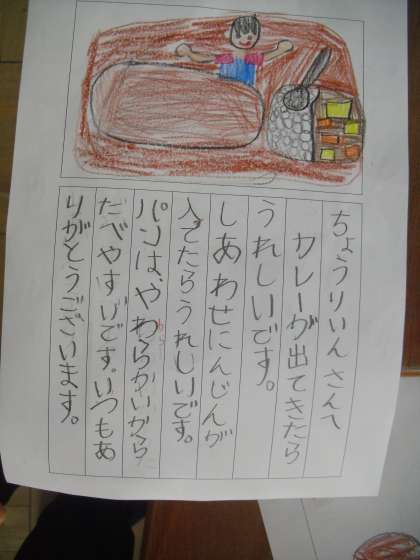 ちょうりいんさんへ
カレーが出てきたら
うれしいです。
しあわせにんじんが
入てたらうれしいです。
パンは、やわらかいから
たべやすいです。いつもあ
りがとうございます。